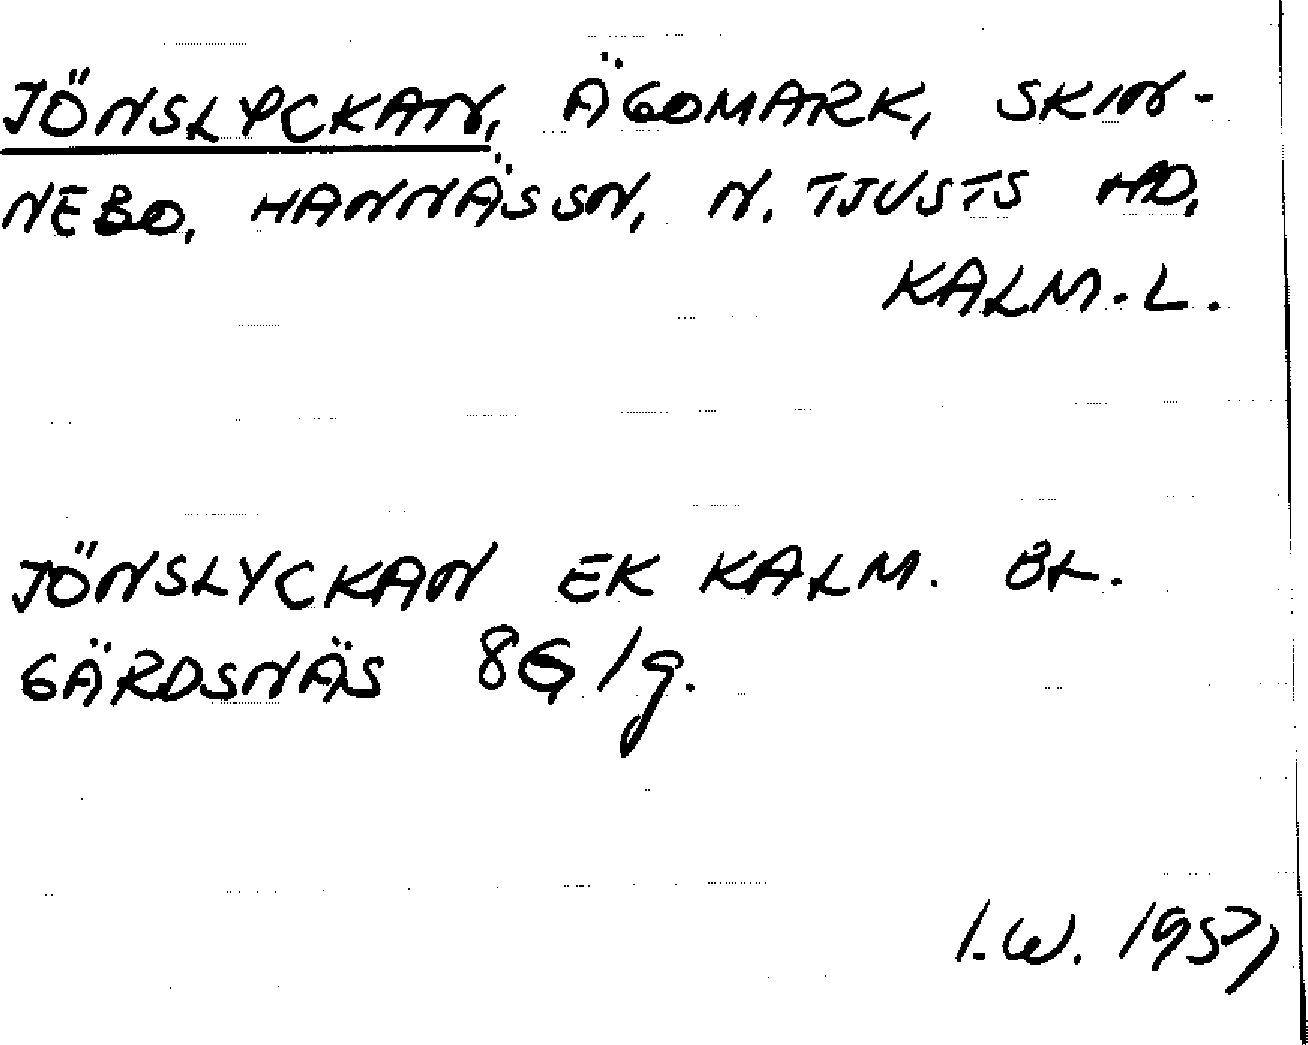 JÖNSLYCKAN, ÄGOMARK, SKIN-
NEBO, HANNÄS SN, N. TJUSTS HD,
KALM. L.
JÖNSLYCKAN EK KALM. BL.
GÄRDSNÄS 8G/g.
I.W. 1957